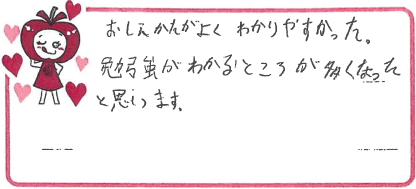 おしえかたがよく わかりやすかった。
勉強がわかるところが多くなった
と思います。